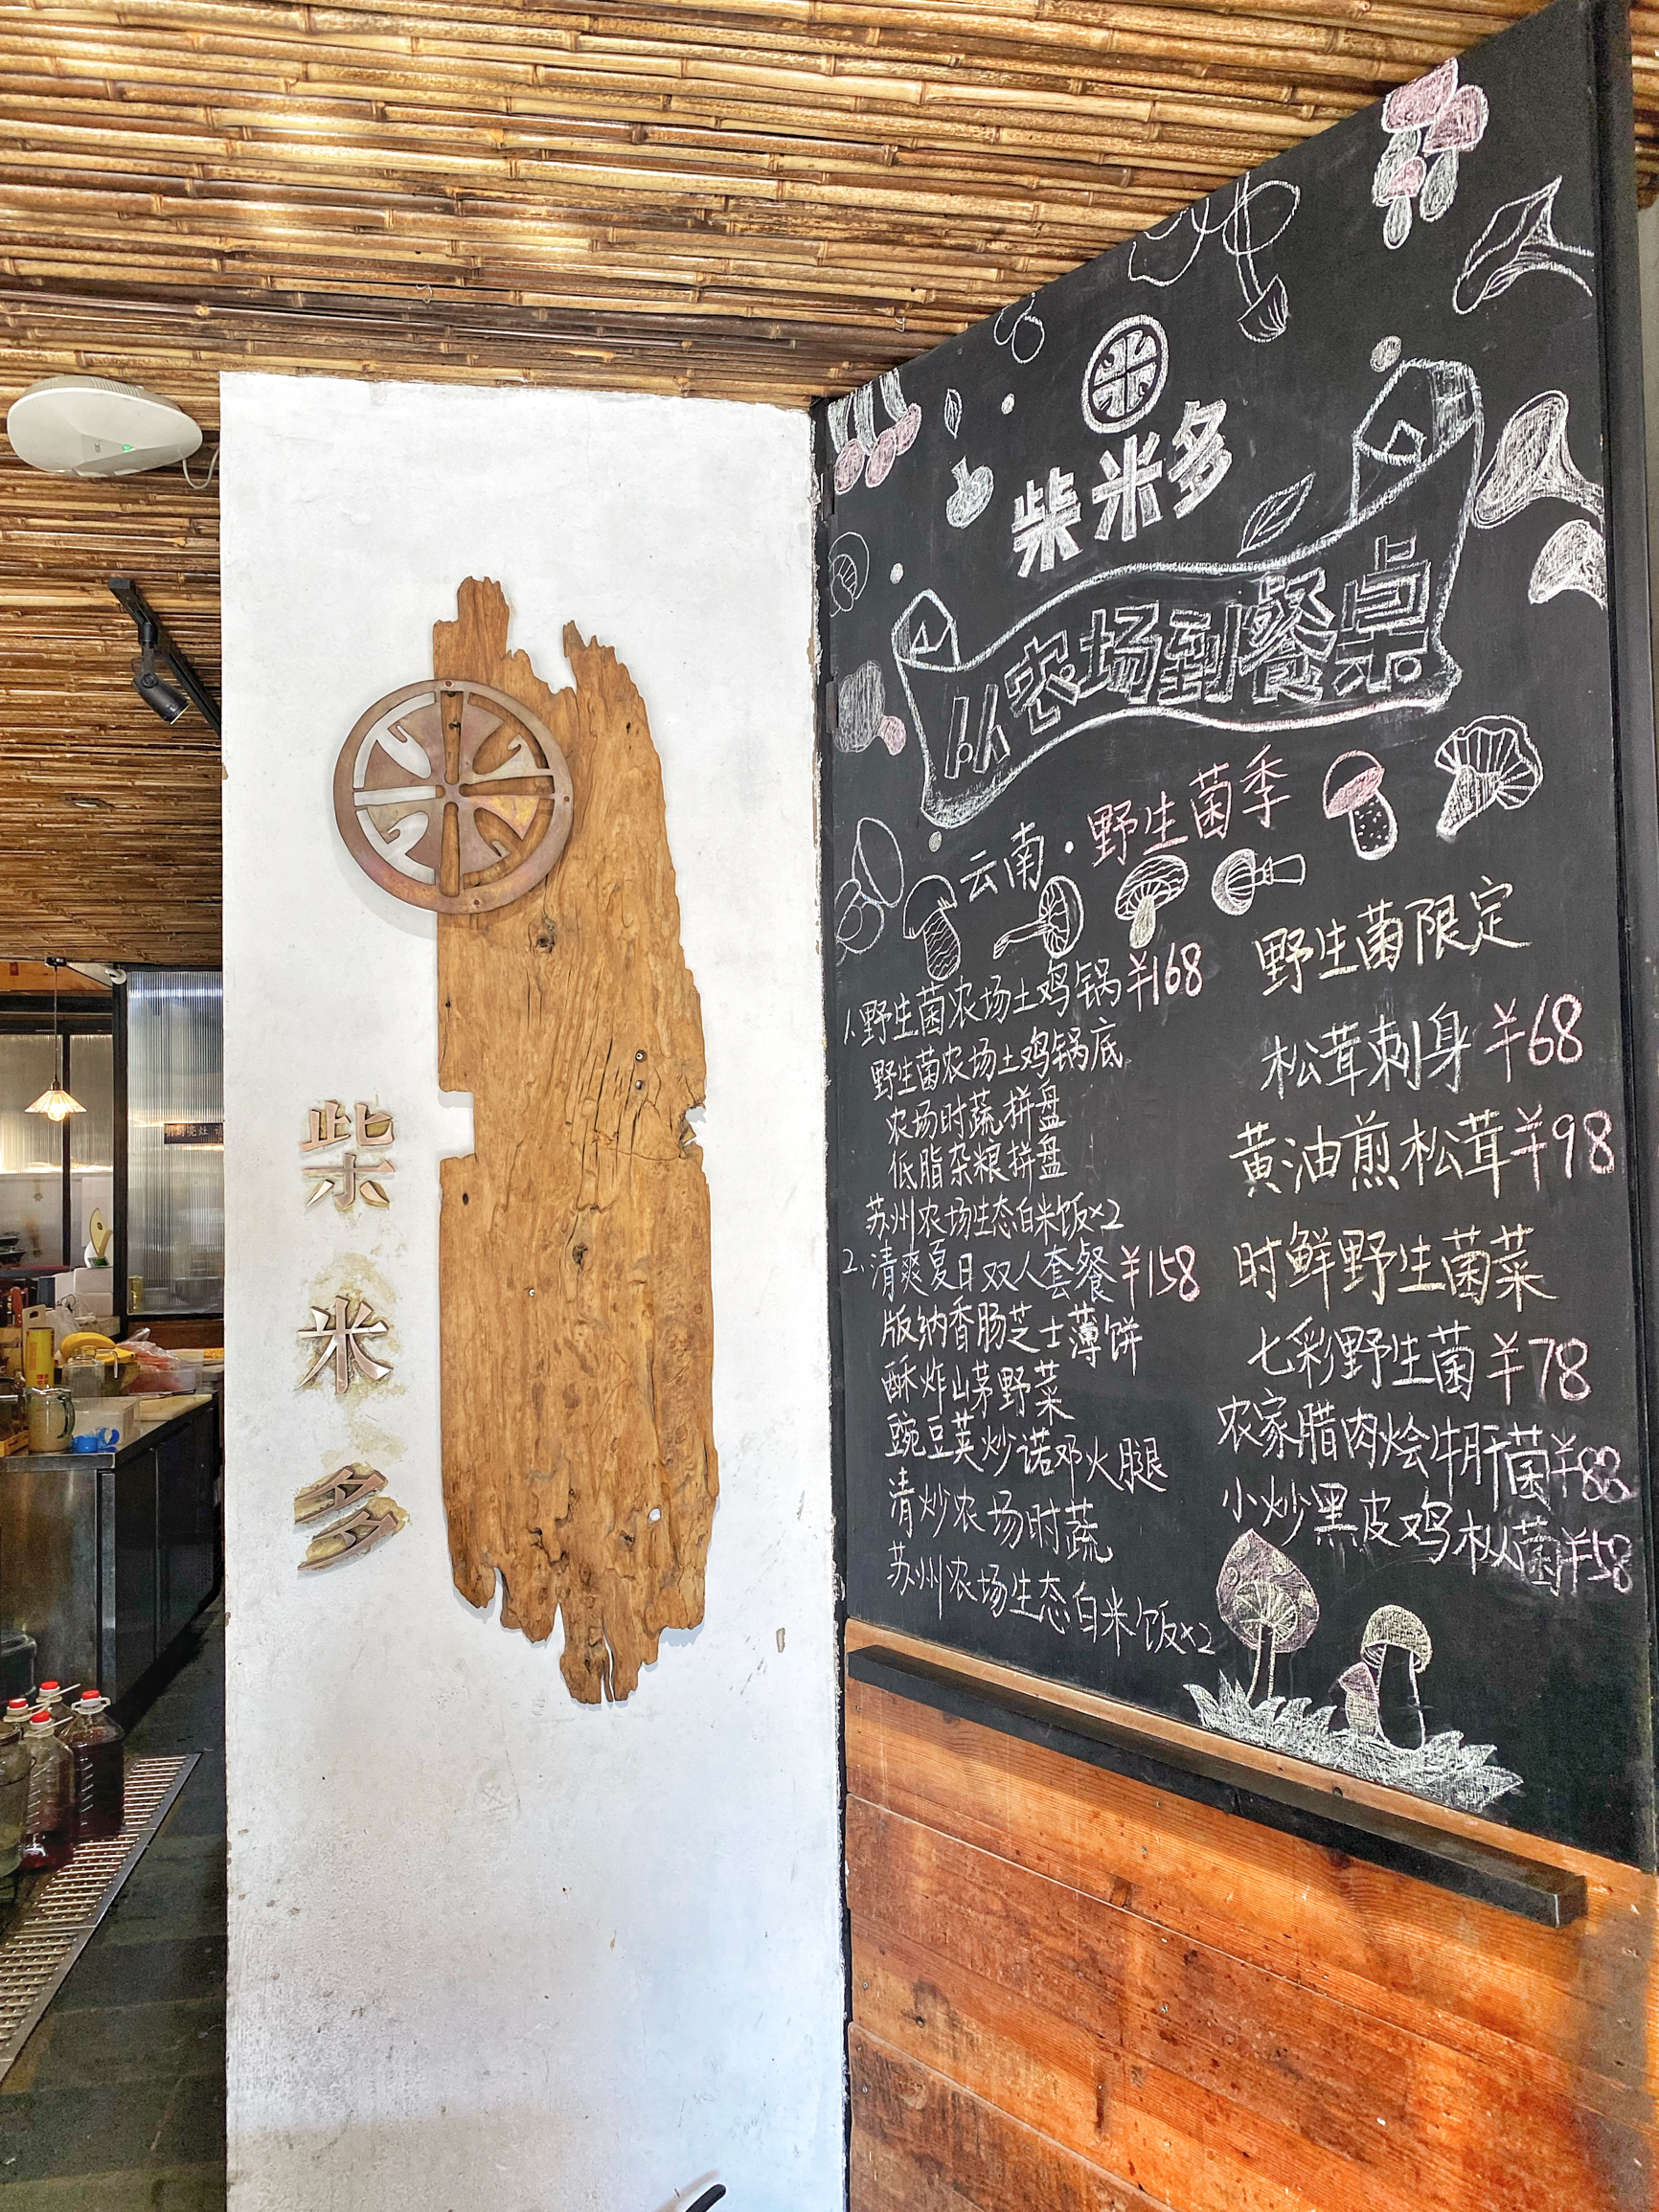 柴米多
柴米多
从农场到餐桌
云南·野生菌季
1.野生菌农场土鸡锅¥168
野生菌农场土鸡锅底
农场时蔬拼盘
低脂杂粮拼盘
苏州农场生态白米饭×2
2.清爽夏日双人套餐¥158
版纳香肠芝士薄饼
酥炸山茅野菜
豌豆荚炒诺邓火腿
清炒农场时蔬
苏州农场生态白米饭×2
野生菌限定
松茸刺身¥68
黄油煎松茸¥98
时鲜野生菌菜
七彩野生菌¥78
农家腊肉烩牛肝菌¥88
小炒黑皮鸡枞菌¥58